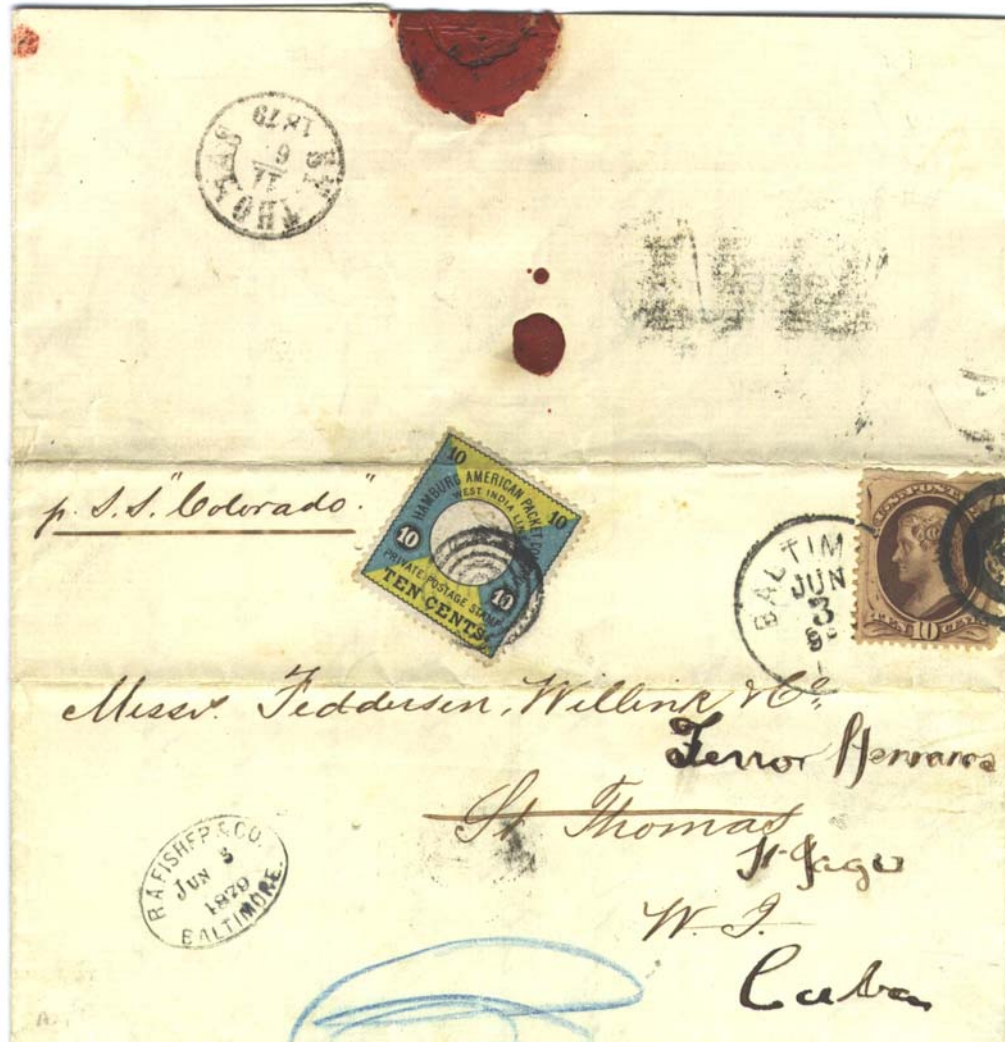 ST THOMAS
11/6
1879
p. S.S. "Colorado."
10
10
HAMBURG AMERICAN PACKET CO
WEST INDIA LINE
10
10
PRIVATE POSTAGE STAMP
TEN CENTS
BALTIM
JUN
3
10
Messrs. Feddersen, Willink & Co,
Ferror Hermanos
St Thomas
St Jago
W. I.
Cuba
R.A. FISHER & CO.
JUN 3
1879
BALTIMORE.